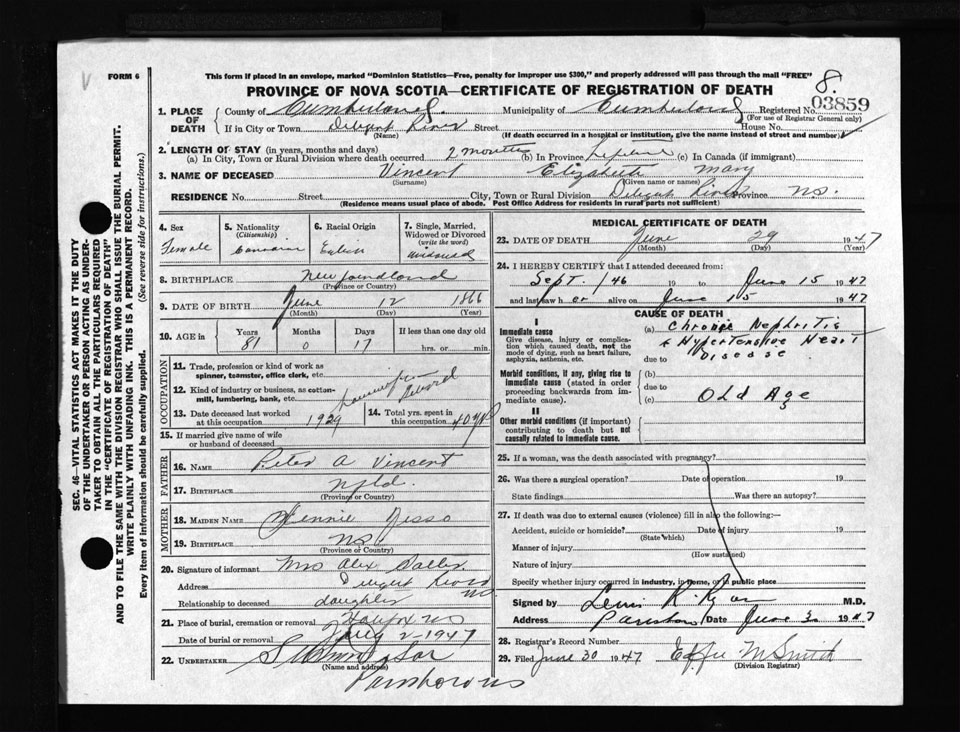 FORM 6
This form if placed in an envelope, marked "Dominion Statistics—Free, penalty for improper use $300," and properly addressed will pass through the mail "FREE"
8.
PROVINCE OF NOVA SCOTIA—CERTIFICATE OF REGISTRATION OF DEATH
03859
1. PLACE OF DEATH
County of Cumberland Municipality of Cumberland Registered No.
(For use of Registrar General only)
If in City or Town Diligent River Street House No.
(Name) (If death occurred in a hospital or institution, give the name instead of street and number)
2. LENGTH OF STAY (in years, months and days)
(a) In City, Town or Rural Division where death occurred 2 months (b) In Province (c) In Canada (if immigrant)
3. NAME OF DECEASED Vincent Elizabeth Mary
(Surname) (Given name or names)
RESIDENCE No. Street City, Town or Rural Division Diligent River Province N.S.
(Residence means usual place of abode. Post Office Address for residents in rural parts not sufficient)
4. Sex
Female
5. Nationality
(Citizenship)
Canadian
6. Racial Origin
English
7. Single, Married, Widowed or Divorced
(write the word)
Widowed
8. BIRTHPLACE Newfoundland
(Province or Country)
9. DATE OF BIRTH June 12 1866
(Month) (Day) (Year)
10. AGE in
Years Months Days If less than one day old
81 0 17 hrs. or min.
OCCUPATION
11. Trade, profession or kind of work as
spinner, teamster, office clerk, etc.
12. Kind of industry or business, as cotton-
mill, lumbering, bank, etc.
Retired
13. Date deceased last worked
at this occupation 1929
14. Total yrs. spent in
this occupation 40 yrs
15. If married give name of wife
or husband of deceased
FATHER
16. NAME Peter A Vincent
17. BIRTHPLACE Nfld.
(Province or Country)
MOTHER
18. MAIDEN NAME Jennie
19. BIRTHPLACE NS
(Province or Country)
20. Signature of informant Mrs Alex
Address Diligent River
NS
Relationship to deceased daughter
21. Place of burial, cremation or removal Halifax NS
Date of burial or removal July 2-1947
22. UNDERTAKER
(Name and address)
Parrsboro NS
MEDICAL CERTIFICATE OF DEATH
23. DATE OF DEATH June 29 1947
(Month) (Day) (Year)
24. I HEREBY CERTIFY that I attended deceased from:
Sept. /46 19 to June 15 1947
and last saw her alive on June 15 1947
CAUSE OF DEATH
I
Immediate cause
Give disease, injury or complica-
tion which caused death, not the
mode of dying, such as heart failure,
asphyxia, asthenia, etc.
(a) Chronic Nephritis
& Hypertensive Heart
Disease
due to
Morbid conditions, if any, giving rise to
immediate cause (stated in order
proceeding backwards from im-
mediate cause).
(b)
due to
(c) Old Age
II
Other morbid conditions (if important)
contributing to death but not
causally related to immediate cause.
25. If a woman, was the death associated with pregnancy?
26. Was there a surgical operation? Date of operation 19
State findings Was there an autopsy?
27. If death was due to external causes (violence) fill in also the following:—
Accident, suicide or homicide? Date of injury 19
(State which)
Manner of injury
(How sustained)
Nature of injury
Specify whether injury occurred in industry, in home, or in public place
Signed by M.D.
Address Parrsboro Date June 30 1947
28. Registrar's Record Number
29. Filed June 30 1947 Effie M Smith
(Division Registrar)
SEC. 46—VITAL STATISTICS ACT MAKES IT THE DUTY
OF THE UNDERTAKER OR PERSON ACTING AS UNDER-
TAKER TO OBTAIN ALL THE PARTICULARS REQUIRED
IN THE "CERTIFICATE OF REGISTRATION OF DEATH"
AND TO FILE THE SAME WITH THE DIVISION REGISTRAR WHO SHALL ISSUE THE BURIAL PERMIT.
WRITE PLAINLY WITH UNFADING INK. THIS IS A PERMANENT RECORD.
Every item of information should be carefully supplied. (See reverse side for instructions.)